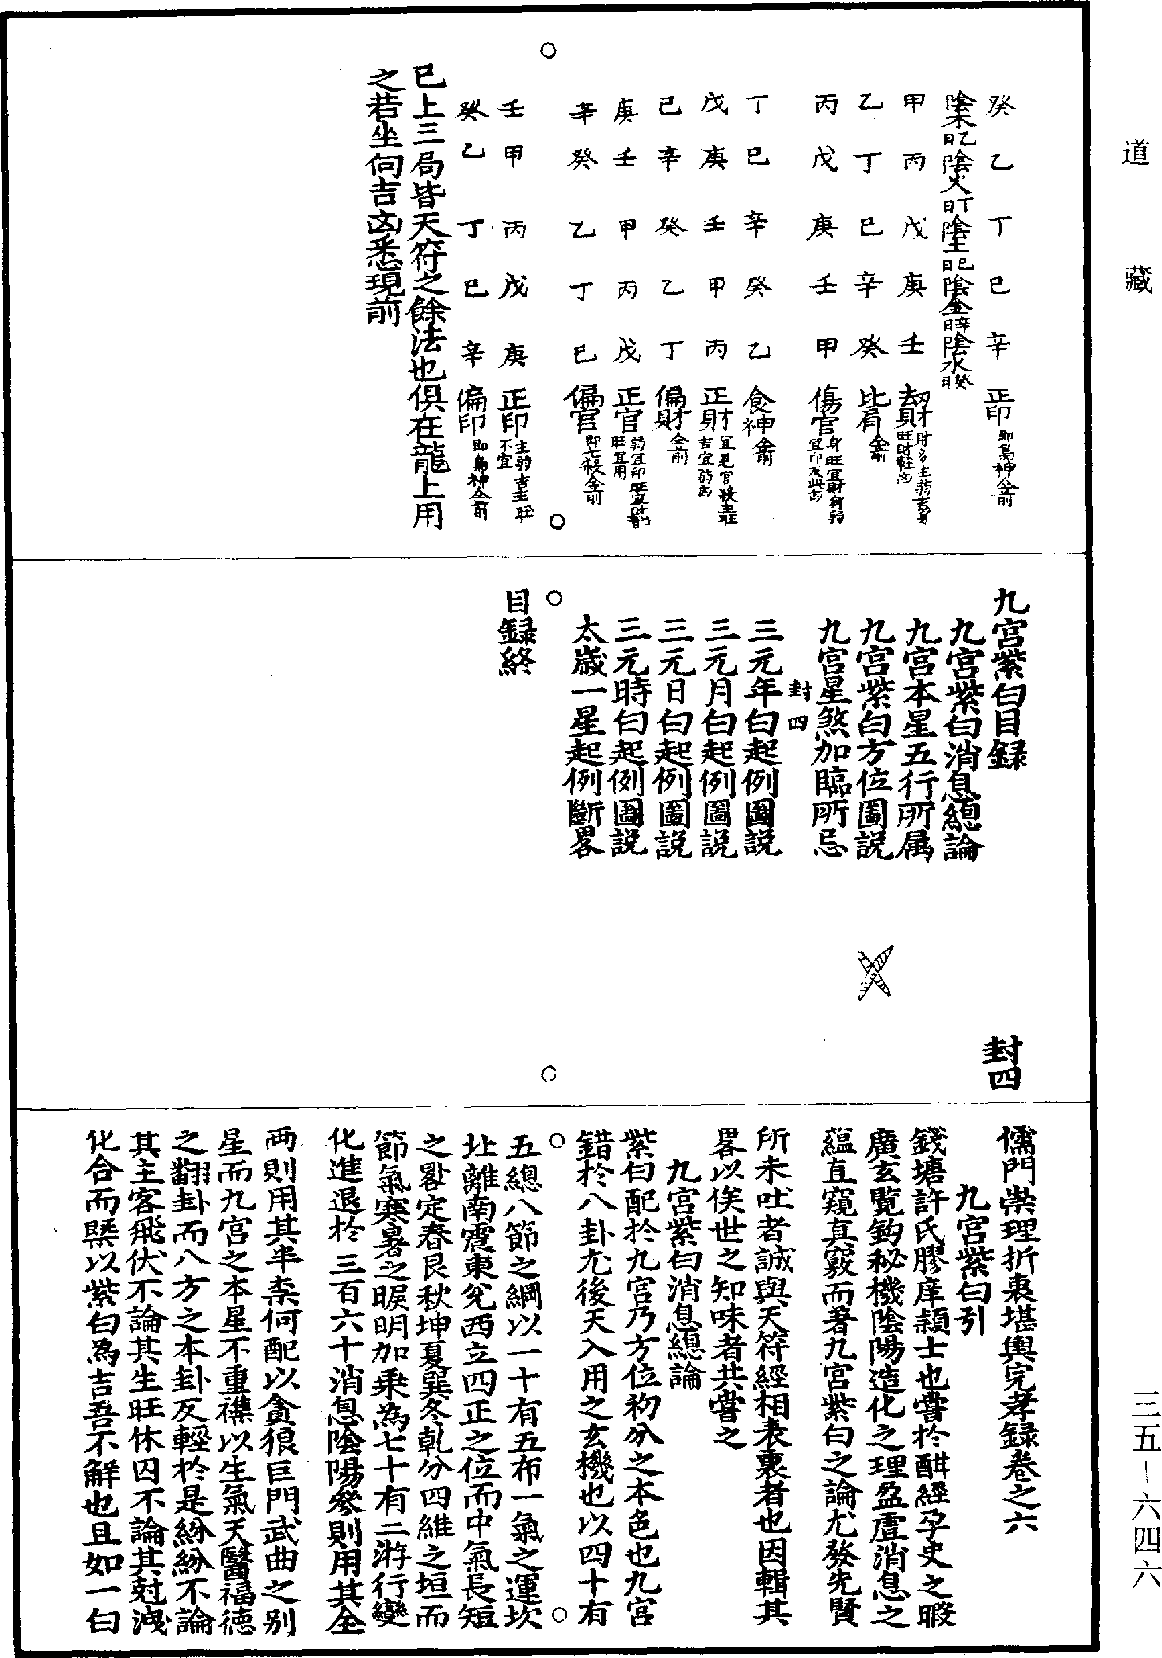 癸乙丁巳辛正印即梟神仝前
陰木日乙陰火日丁陰土日巳陰金日辛陰水日癸
甲丙戊庚壬刼財
乙丁巳辛癸比肩仝前
丙戊庚壬甲傷官
丁巳辛癸乙食神仝前
戊庚壬甲丙正財
巳辛癸乙丁偏財仝前
庚壬甲丙戊正官
辛癸乙丁巳偏官即七殺仝前
壬甲丙戊庚正印主弱吉主旺不宜
癸乙丁巳辛偏印即梟神仝前
已上三局皆天符之餘法也俱在龍上用
之若坐向吉凶悉現前
九宮紫白目録
九宮紫白消息總論
九宮本星五行所属
九宮紫白方位圖説
九宮星煞加臨所忌
封四
三元年白起例圖説
三元月白起例圖説
三元日白起例圖説
三元時白起例圖説
太歲一星起例斷畧
目録終
封四
儒門崇理折衷堪輿完孝録卷之六
九宮紫白引
錢塘許氏膠庠頴士也嘗於酣經孕史之暇
廣玄覽鈎秘機陰陽造化之理盈虚消息之
蘊直窺真竅而著九宮紫白之論尤發先賢
所未吐者誠與天符經相表裏者也因輯其
畧以俟世之知味者共嘗之
九宮紫白消息總論
紫白配於九宮乃方位初分之本色也九宮
錯於八卦尤後天入用之玄機也以四十有
五總八節之綱以一十有五布一氣之運坎
北離南震東兊西立四正之位而中氣長短
之晷定春艮秋坤夏巽冬乾分四維之垣而
節氣寒暑之睙明加乗為七十有二游行變
化進退於三百六十消息陰陽參則用其全
両則用其半柰何配以貪狼巨門武曲之别
星而九宮之本星不重襍以生氣天醫福德
之翻卦而八方之本卦反輕於是紛紛不論
其主客飛伏不論其生旺休囚不論其尅洩
化合而槩以紫白為吉吾不解也且如一白
道藏
三五-六四六